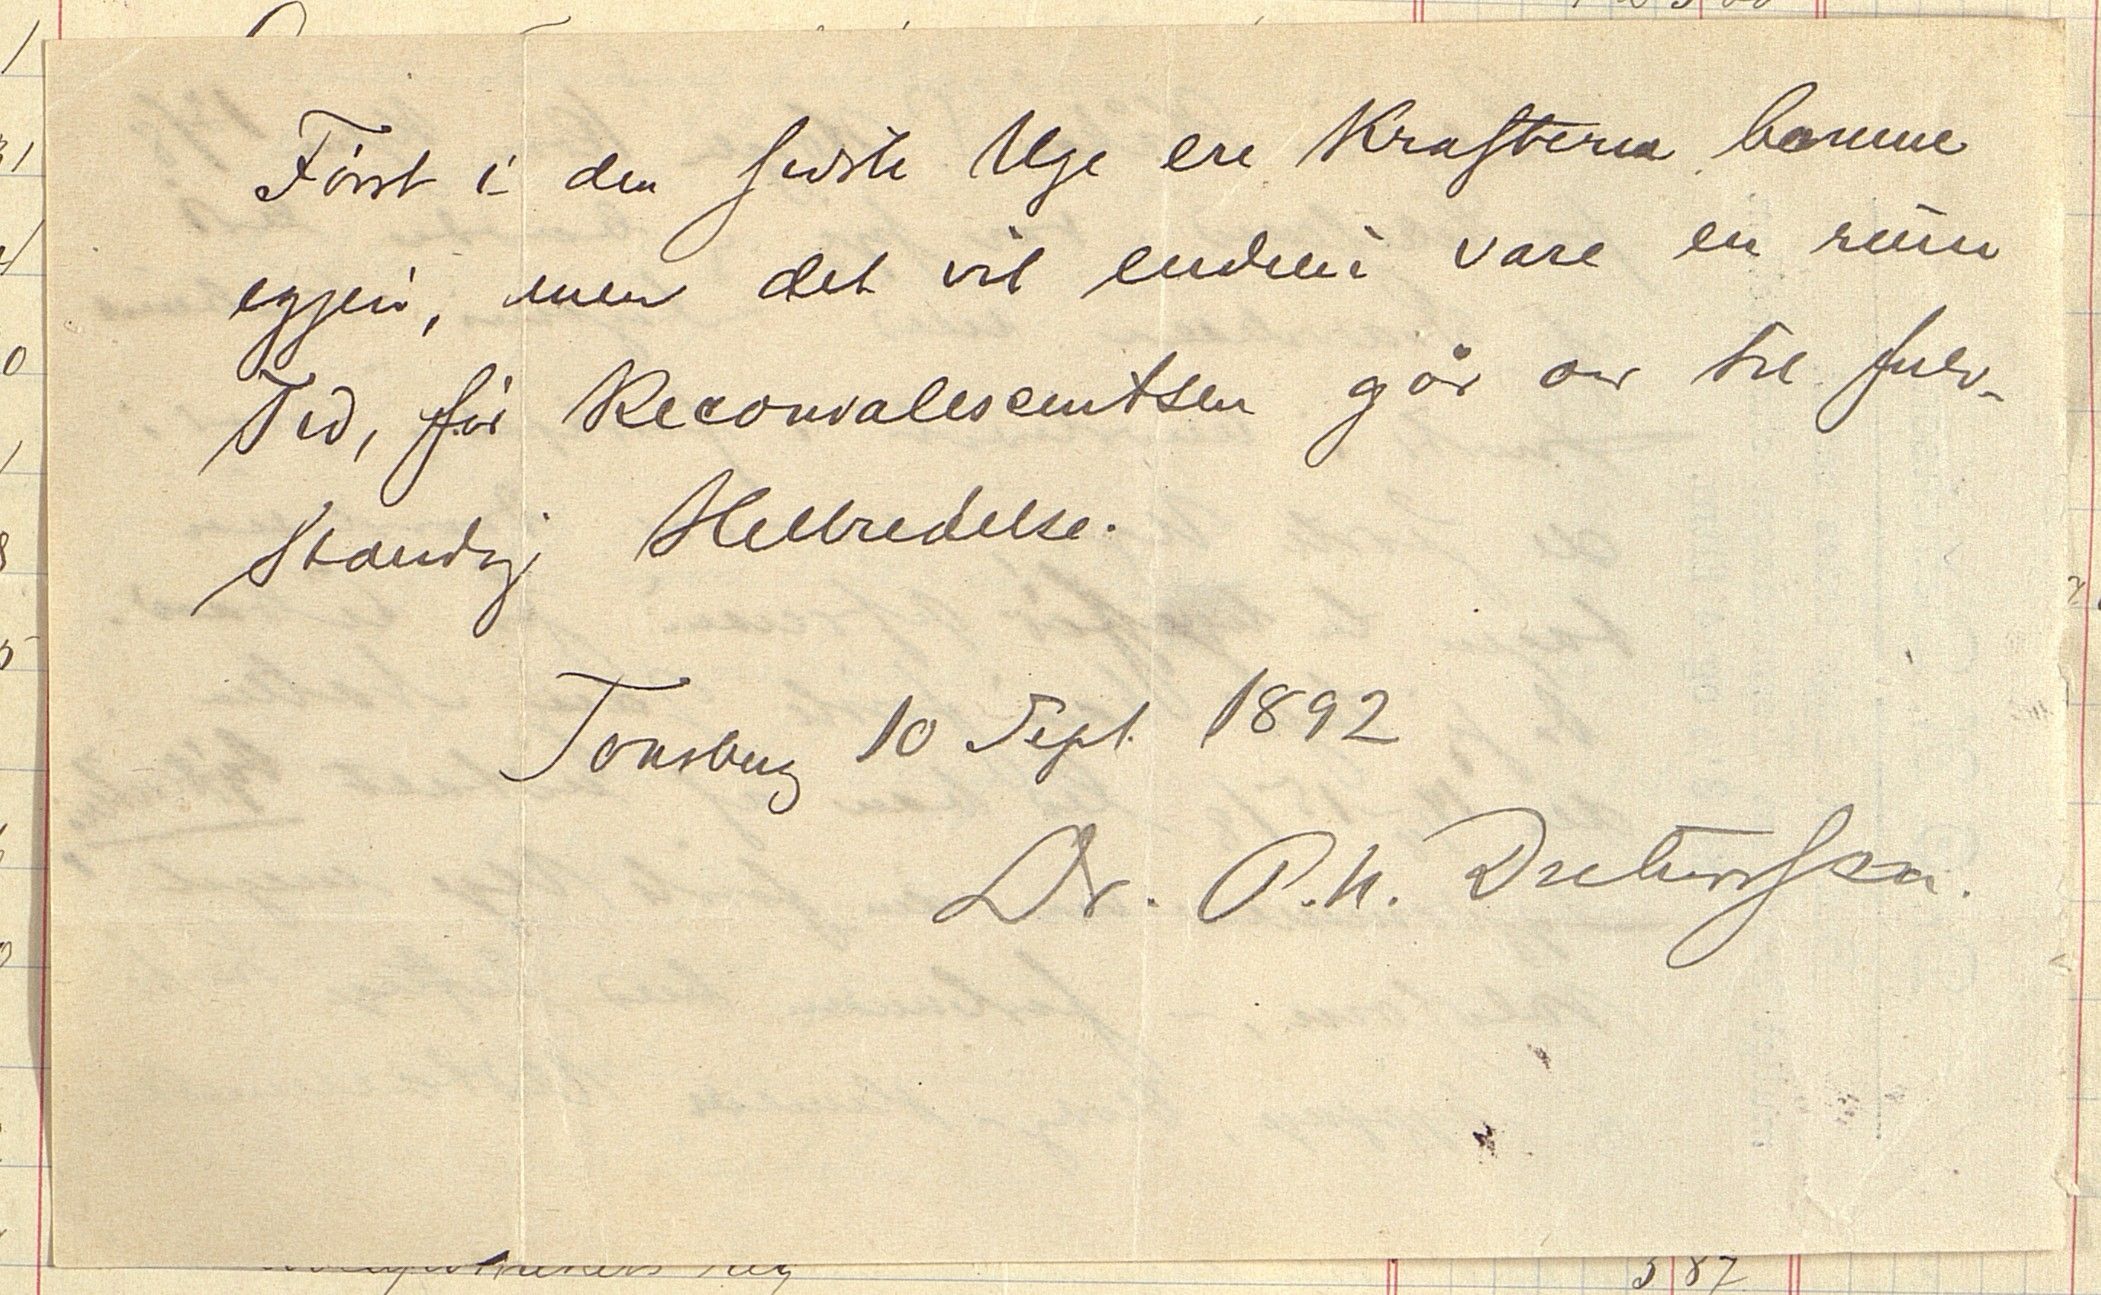 Først i den sidste Uge ere Kræfterne komne
igjen, men det vil endnu vare en rum
Tid, før Reconvalescentsen går over til fuld-
stændig Helbredelse.
Tønsberg 10 Sept. 1892
Dr. P. H.
387